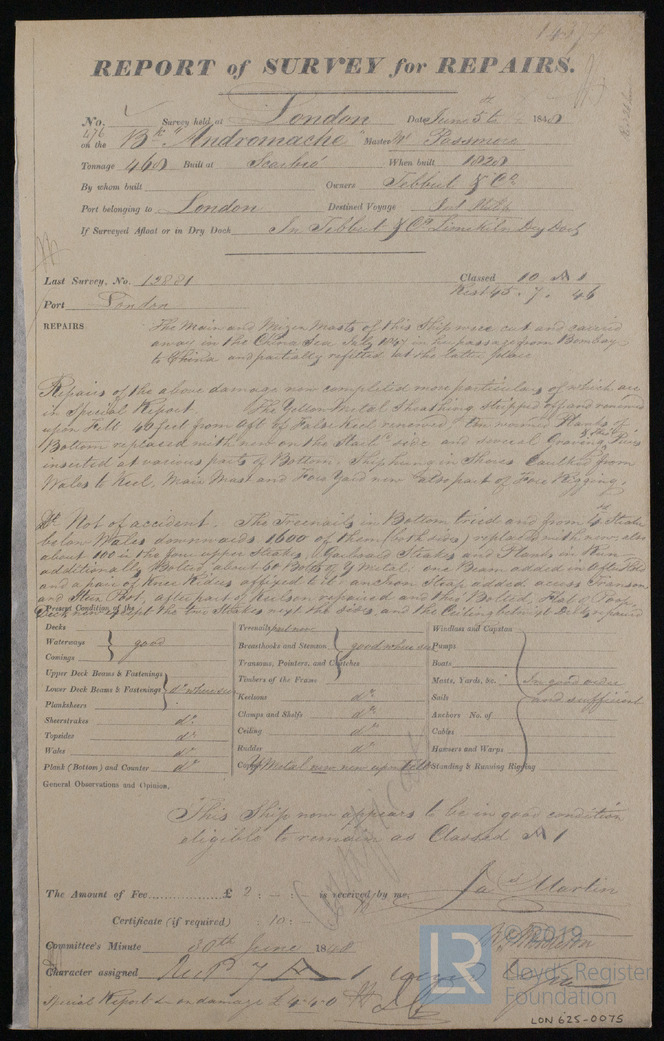 REPORT of SURVEY for REPAIRS.
No. 476 Survey held at London Date June 5th 1848
on the Bk "Andromache" Master Wm Passmore
Tonnage 468 Built at Scarbro When built 1828
By whom built Owners Tebbut & Co
Port belonging to London Destined Voyage
If Surveyed Afloat or in Dry Dock In Tebbut & Co Limekiln Dry Dock
Last Survey, No. 12881 Classed 10 A 1
Port London Rest 45. 7. 46
REPAIRS The Main and Mizen Masts of this Ship were cut and carried
away in the China Sea July 1847 in her passage from Bombay
to China and partially refitted at the latter place
Repairs of the above damage now completed more particulars of which are
in Special Report. The Yellow Metal Sheathing stripped off and renewed
upon Felt 40 feet from aft of False Keel renewed ten Planks of
Bottom replaced with new on the Starbd side and several Graving Pieces
inserted at various parts of Bottom. Ship hung in Shores Caulked from
Wales to Keel, Main Mast and Fore Yard new also part of Fore Rigging.
Not of accident. The Treenails in Bottom tried and from 4 Strake
below Wales downwards 1600 of them (both sides) replaced with new; also
about 100 in the four upper Strakes, Garboard Strakes and Planks in Run
additionally Bolted about 60 Bolts of Y Metal. One Beam added in After Hold
and a pair of Knee Riders affixed to it: an iron Strap added across Transom
and Stern Post, after part of Keelson repaired and thus Bolted, Flat of Poop
Deck new except the two Strakes next the sides, and the Ceiling betwixt Decks repaired
Present Condition of the
Decks
Waterways good
Comings
Upper Deck Beams & Fastenings
Lower Deck Beams & Fastenings do where seen
Planksheers
Sheerstrakes do
Topsides do
Wales do
Plank (Bottom) and Counter do
Treenails part new
Breasthooks and Stemson good where seen
Transoms, Pointers, and Crutches
Timbers of the Frame
Keelsons do
Clamps and Shelfs do
Ceiling do
Rudder do
Copper Y Metal now new upon felt
Windlass and Capstan
Pumps
Boats
Masts, Yards, &c. In good order
Sails and sufficient
Anchors No. of
Cables
Hawsers and Warps
Standing & Running Rigging
General Observations and Opinion.
This Ship now appears to be in good condition
eligible to remain as Classed A 1
The Amount of Fee £ 2 : - : - is received by me,
Jas Martin
Certificate (if required) : 10 : -
Committee's Minute 30th June 1848
Character assigned A 1
Special Report on damage £ 4-4-0
LR © 2019
Lloyd's Register
Foundation
LON 625-0075